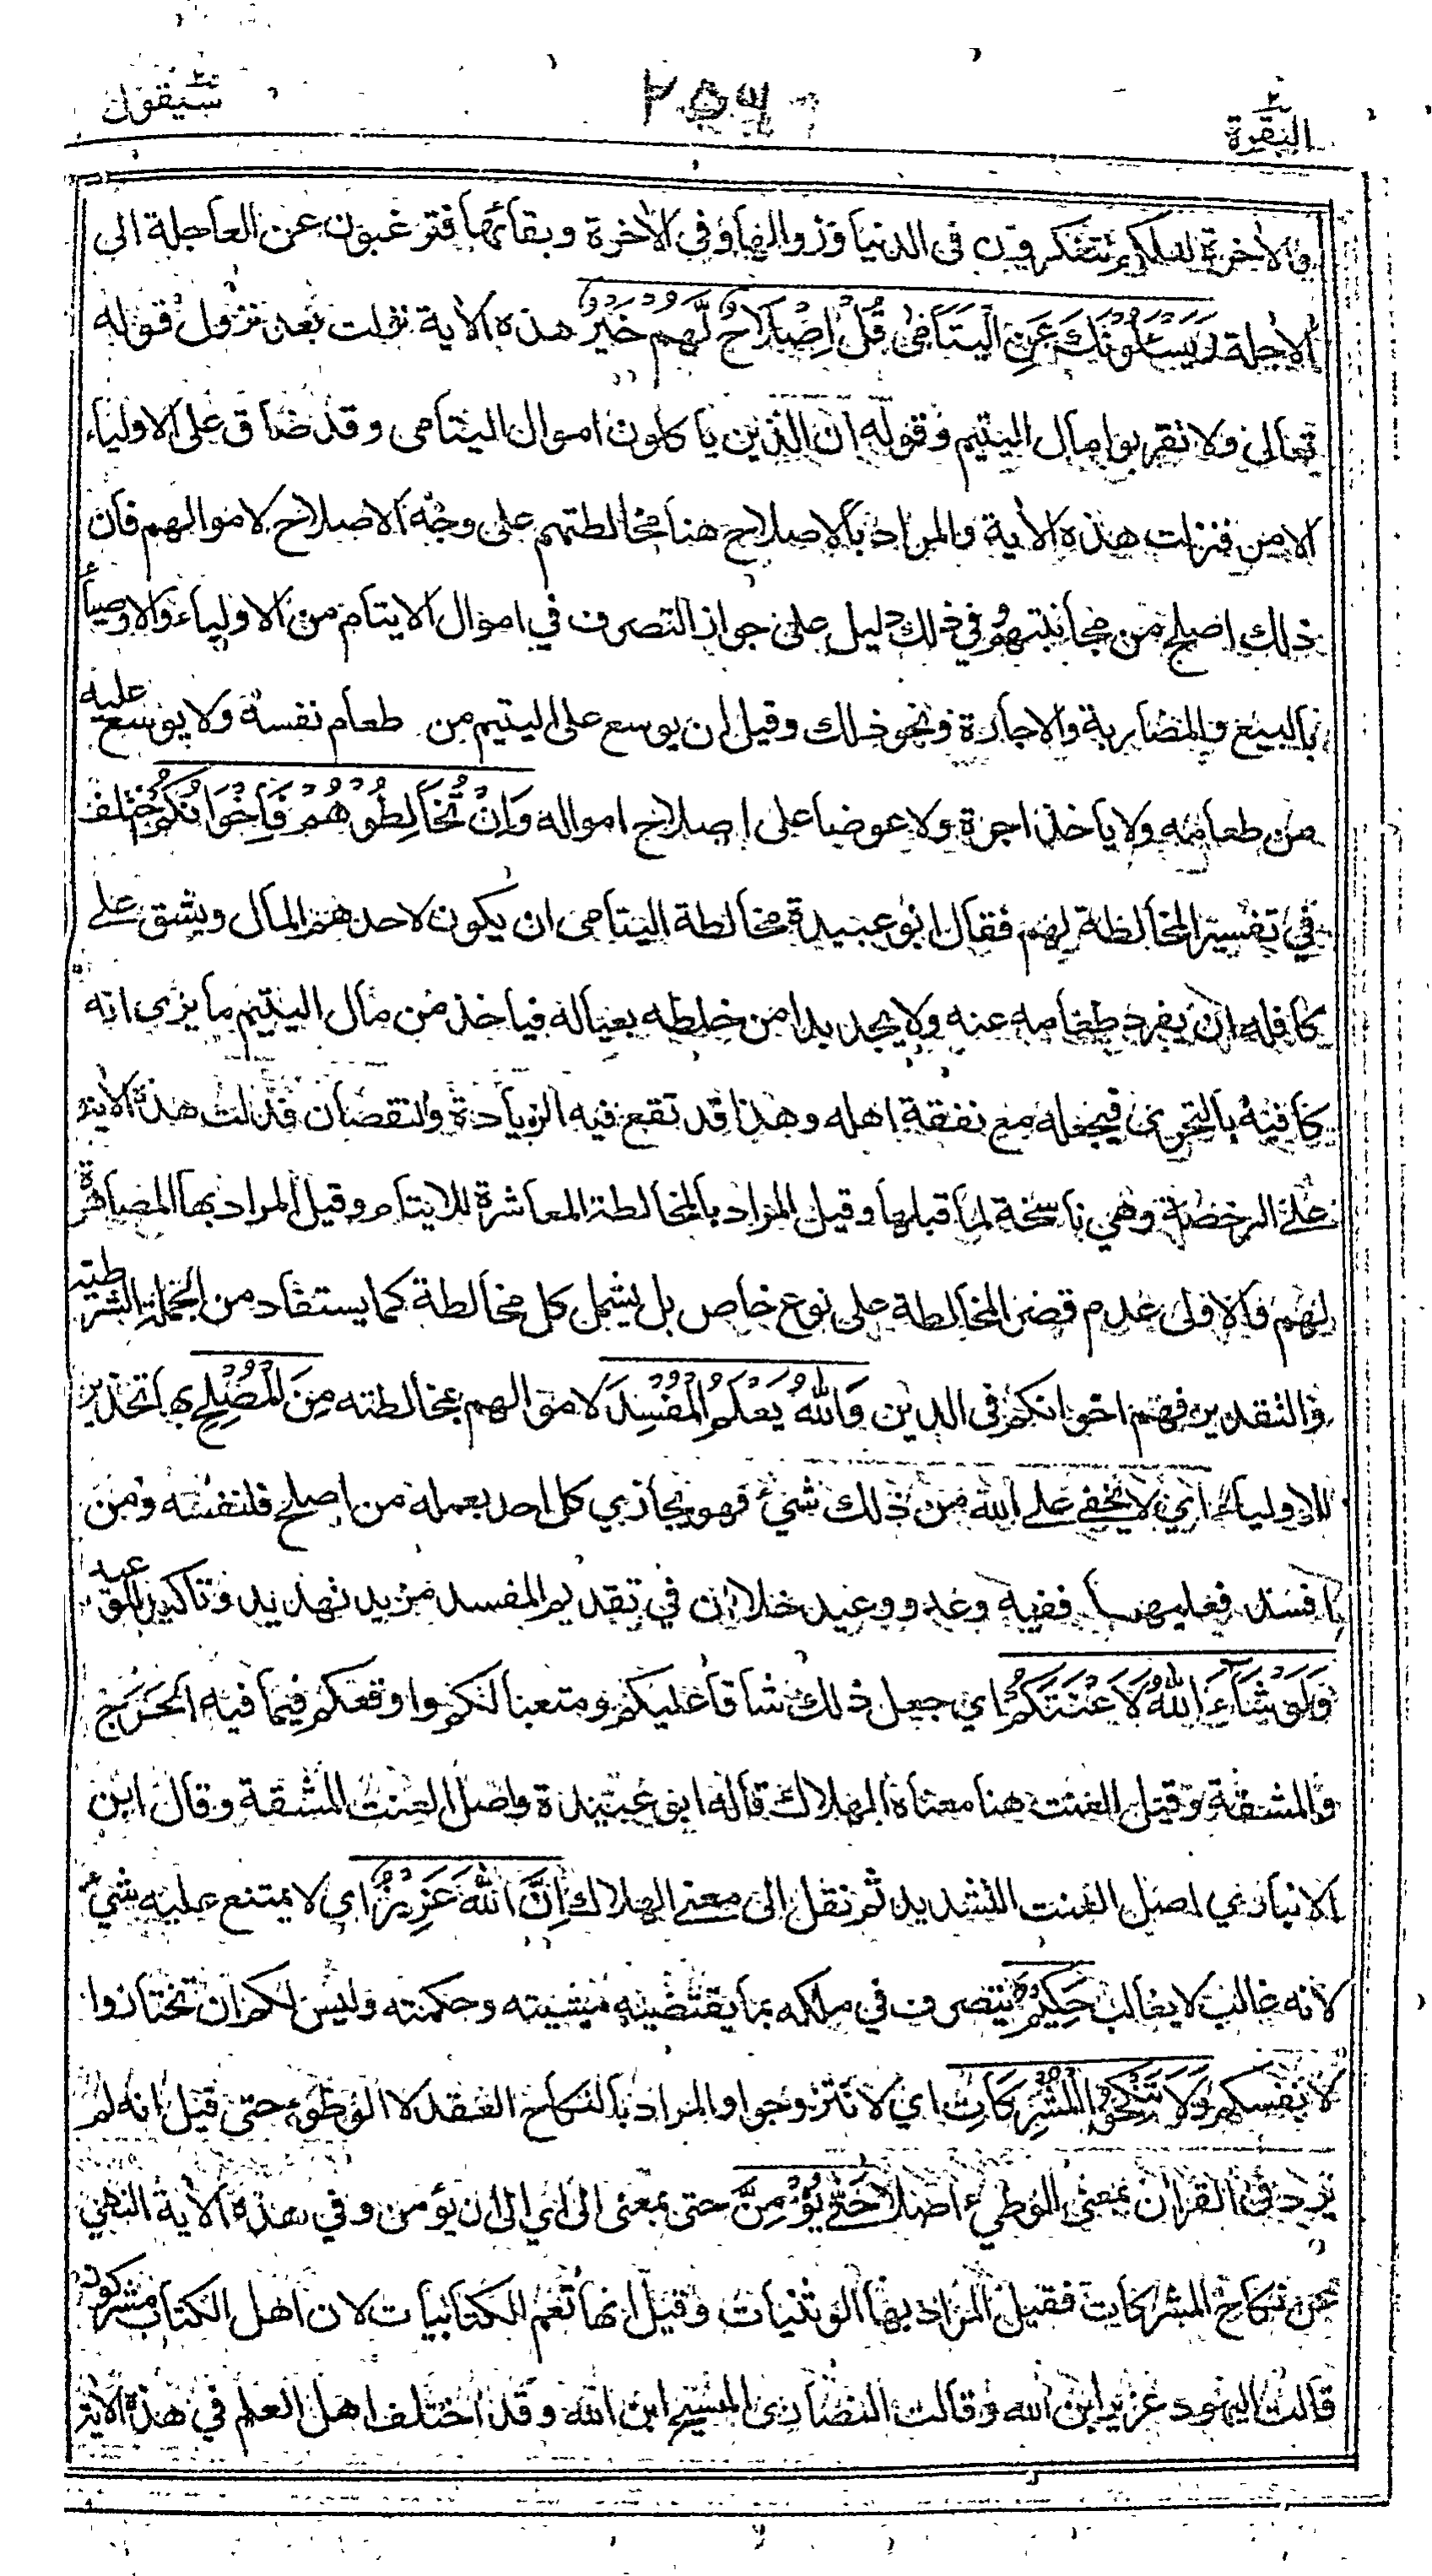 البقرة ٢
٢٥٦
سيقول ٢
والاخرة لعلكم تتفكرون في الدنيا وزوالها وفي الاخرة وبقائها فترغبون عن العاجلة الى
الاجلة وَيَسْئَلُوْنَكَ عَنِ الْيَتَامٰى قُلْ اِصْلَاحٌ لَّهُمْ خَيْرٌ هذه الاية نزلت بعد نزول قوله
تعالى ولا تقربوا مال اليتيم وقوله ان الذين ياكلون اموال اليتامى وقد ضاق على الاولياء
الامر فنزلت هذه الاية والمراد بالاصلاح هنا مخالطتهم على وجه الاصلاح لاموالهم فان
ذلك اصلح من مجانبتهم وفي ذلك دليل على جواز التصرف في اموال الايتام من الاولياء والاوصياء
بالبيع والمضاربة والاجارة ونحو ذلك وقيل ان يوسع على اليتيم من طعام نفسه ولا يوسع عليه
من طعامه ولا ياخذ اجرة ولا عوضا على اصلاح امواله وَاِنْ تُخَالِطُوْهُمْ فَاِخْوَانُكُمْ اختلف
في تفسير المخالطة لهم فقال ابو عبيدة مخالطة اليتامى ان يكون لاحدهم المال ويشق على
كافله ان يفرد طعامه عنه ولا يجد بدا من خلطه بعياله فياخذ من مال اليتيم ما يرى انه
كافيه بالتحري فيجعله مع نفقة اهله وهذا قد تقع فيه الزيادة والنقصان فدلت هذه الاية
على الرخصة وهي ناسخة لما قبلها وقيل المراد بالمخالطة المعاشرة للايتام وقيل المراد بها المصاهرة
لهم والاولى عدم قصر المخالطة على نوع خاص بل يشمل كل مخالطة كما يستفاد من الجملة الشرطية
والتقدير فهم اخوانكم في الدين وَاللهُ يَعْلَمُ الْمُفْسِدَ لاموالهم بمخالطته مِنَ الْمُصْلِحِ بها تحذير
للاولياء اي لا يخفى على الله من ذلك شيء فهو يجازي كل احد بعمله من اصلح فلنفسه ومن
افسد فعليها ففيه وعد ووعيد خلا ان في تقديم المفسد مزيد تهديد وتاكيد للوعيد
وَلَوْ شَآءَ اللهُ لَاَعْنَتَكُمْ اي جعل ذلك شاقا عليكم ومتعبا لكم واوقعكم فيما فيه الحرج
والمشقة وقيل العنت هنا معناه الهلاك قاله ابو عبيدة واصل العنت المشقة وقال ابن
الانباري اصل العنت التشديد ثم نقل الى معنى الهلاك اِنَّ اللهَ عَزِيْزٌ اي لا يمتنع عليه شيء
لانه غالب لا يغالب حَكِيْمٌ يتصرف في ملكه بما يقتضيه مشيته وحكمته وليس لكم ان تختاروا
لانفسكم وَلَا تَنْكِحُوا الْمُشْرِكَاتِ اي لا تتزوجوا والمراد بالنكاح العقد لا الوطوء حتى قيل انه لم
يرد في القرآن بمعنى الوطيء اصلا حَتّٰى يُؤْمِنَّ حتى بمعنى الى اي الى ان يؤمن وفي هذه الاية النهي
عن نكاح المشركات فقيل المراد بها الوثنيات وقيل انها تعم الكتابيات لان اهل الكتاب مشركون
قالت اليهود عزير ابن الله وقالت النصارى المسيح ابن الله وقد اختلف اهل العلم في هذه الاية